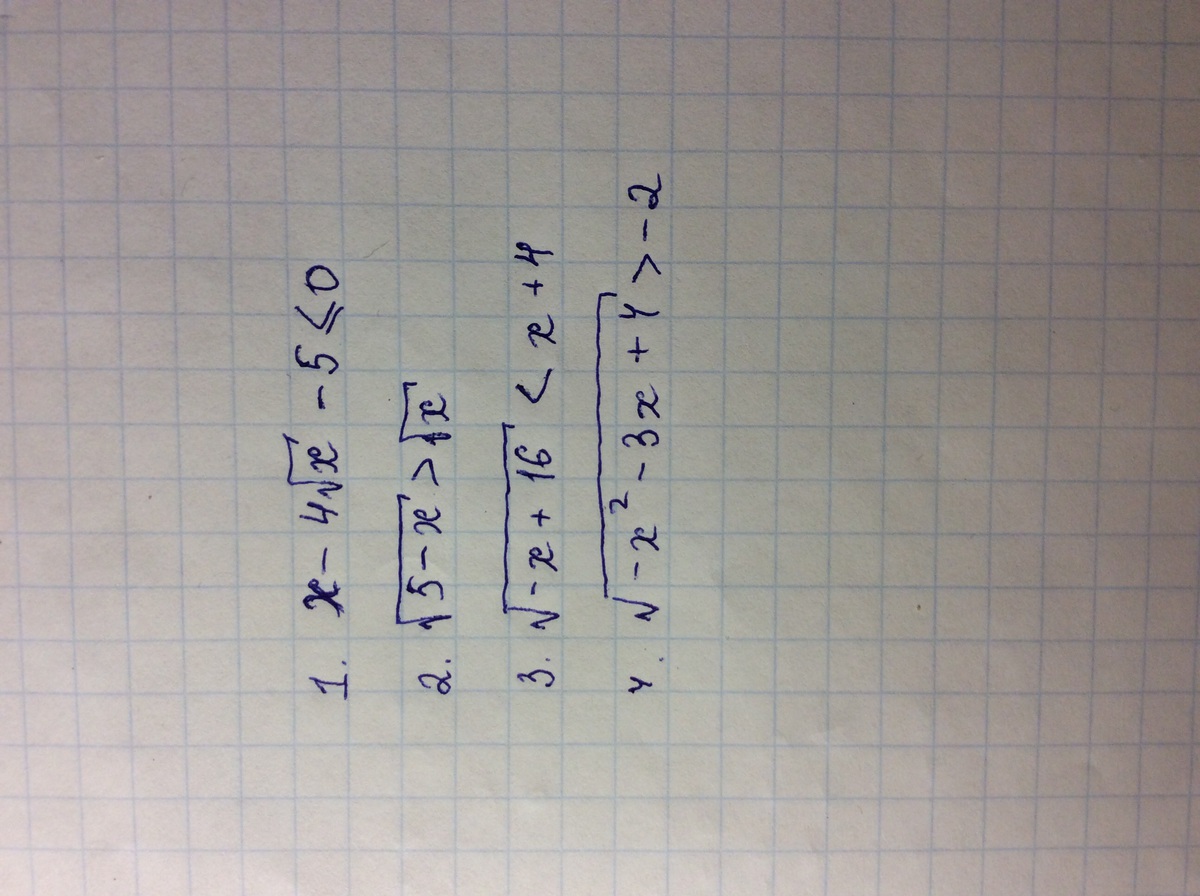 1. x - 4√x - 5 ≤ 0
2. √(5 - x) > √x
3. √(-x + 16) < x + 4
4. √(-x² - 3x + 4) > -2